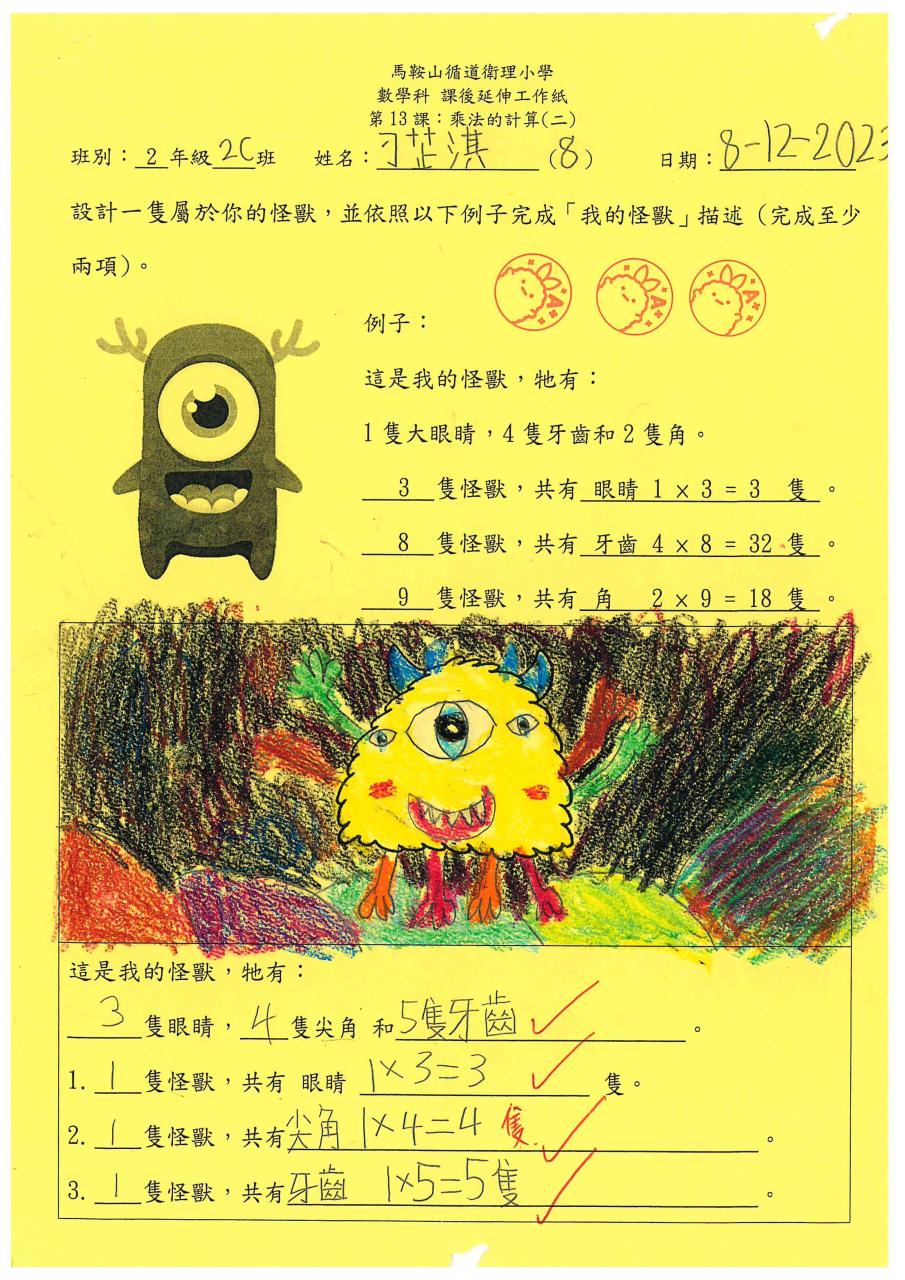 馬鞍山循道衛理小學
數學科 課後延伸工作紙
第13課：乘法的計算(二)
班別：2年級2C班 姓名：刁芷淇(8) 日期：8-12-2023
設計一隻屬於你的怪獸，並依照以下例子完成「我的怪獸」描述（完成至少
兩項）。
A A A
例子：
這是我的怪獸，牠有：
1隻大眼睛，4隻牙齒和2隻角。
3隻怪獸，共有 眼睛 1 × 3 = 3 隻。
8隻怪獸，共有 牙齒 4 × 8 = 32 隻。
9隻怪獸，共有 角 2 × 9 = 18 隻。
這是我的怪獸，牠有：
3隻眼睛，4隻尖角 和5隻牙齒。
1. 1隻怪獸，共有 眼睛 1×3=3 隻。
2. 1隻怪獸，共有尖角 1×4=4 隻。
3. 1隻怪獸，共有牙齒 1×5=5隻。